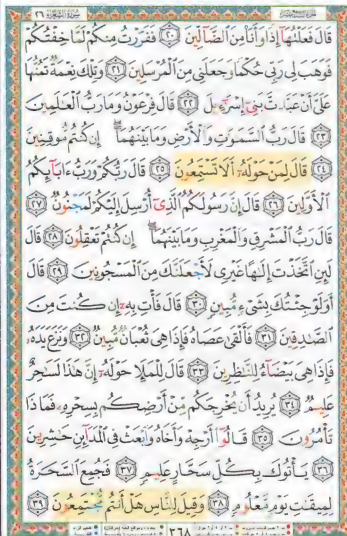 قَالَ فَعَلْتُهَا إِذًا وَأَنَا مِنَ الضَّالِّينَ ٢٠ فَفَرَرْتُ مِنكُمْ لَمَّا خِفْتُكُمْ
فَوَهَبَ لِي رَبِّي حُكْمًا وَجَعَلَنِي مِنَ الْمُرْسَلِينَ ٢١ وَتِلْكَ نِعْمَةٌ تَمُنُّهَا
عَلَيَّ أَنْ عَبَّدتَّ بَنِي إِسْرَٰٓءِيلَ ٢٢ قَالَ فِرْعَوْنُ وَمَا رَبُّ الْعَٰلَمِينَ
٢٣ قَالَ رَبُّ السَّمَٰوَٰتِ وَالْأَرْضِ وَمَا بَيْنَهُمَا إِن كُنتُم مُّوقِنِينَ
٢٤ قَالَ لِمَنْ حَوْلَهُ أَلَا تَسْتَمِعُونَ ٢٥ قَالَ رَبُّكُمْ وَرَبُّ ءَابَآئِكُمُ
الْأَوَّلِينَ ٢٦ قَالَ إِنَّ رَسُولَكُمُ الَّذِي أُرْسِلَ إِلَيْكُمْ لَمَجْنُونٌ ٢٧
قَالَ رَبُّ الْمَشْرِقِ وَالْمَغْرِبِ وَمَا بَيْنَهُمَا إِن كُنتُمْ تَعْقِلُونَ ٢٨ قَالَ
لَئِنِ اتَّخَذْتَ إِلَٰهًا غَيْرِي لَأَجْعَلَنَّكَ مِنَ الْمَسْجُونِينَ ٢٩ قَالَ
أَوَلَوْ جِئْتُكَ بِشَيْءٍ مُّبِينٍ ٣٠ قَالَ فَأْتِ بِهِ إِن كُنتَ مِنَ
الصَّٰدِقِينَ ٣١ فَأَلْقَىٰ عَصَاهُ فَإِذَا هِيَ ثُعْبَانٌ مُّبِينٌ ٣٢ وَنَزَعَ يَدَهُ
فَإِذَا هِيَ بَيْضَآءُ لِلنَّٰظِرِينَ ٣٣ قَالَ لِلْمَلَإِ حَوْلَهُ إِنَّ هَٰذَا لَسَٰحِرٌ
عَلِيمٌ ٣٤ يُرِيدُ أَن يُخْرِجَكُم مِّنْ أَرْضِكُم بِسِحْرِهِ فَمَاذَا
تَأْمُرُونَ ٣٥ قَالُوٓا أَرْجِهْ وَأَخَاهُ وَابْعَثْ فِي الْمَدَآئِنِ حَٰشِرِينَ
٣٦ يَأْتُوكَ بِكُلِّ سَحَّارٍ عَلِيمٍ ٣٧ فَجُمِعَ السَّحَرَةُ
لِمِيقَٰتِ يَوْمٍ مَّعْلُومٍ ٣٨ وَقِيلَ لِلنَّاسِ هَلْ أَنتُم مُّجْتَمِعُونَ ٣٩
٣٦٨